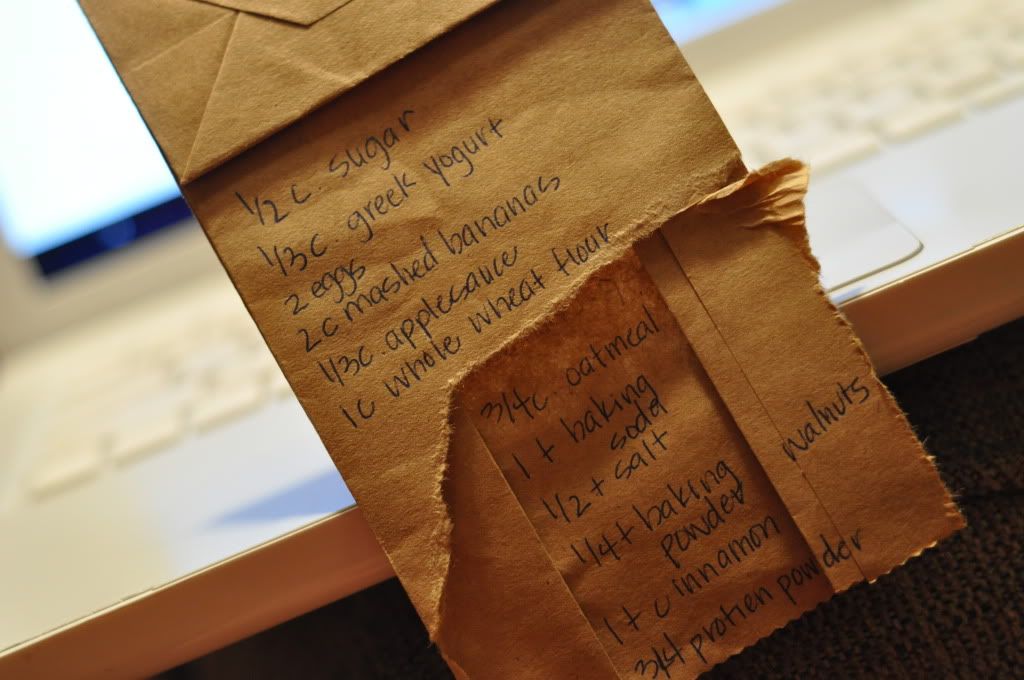 1/2 c. sugar
1/3 c. greek yogurt
2 eggs
2 c mashed bananas
1/3 c. applesauce
1 c whole wheat flour
3/4 c. oatmeal
1 t baking
soda
1/2 t salt
1/4 t baking
powder
1 t cinnamon
3/4 protien powder
walnuts